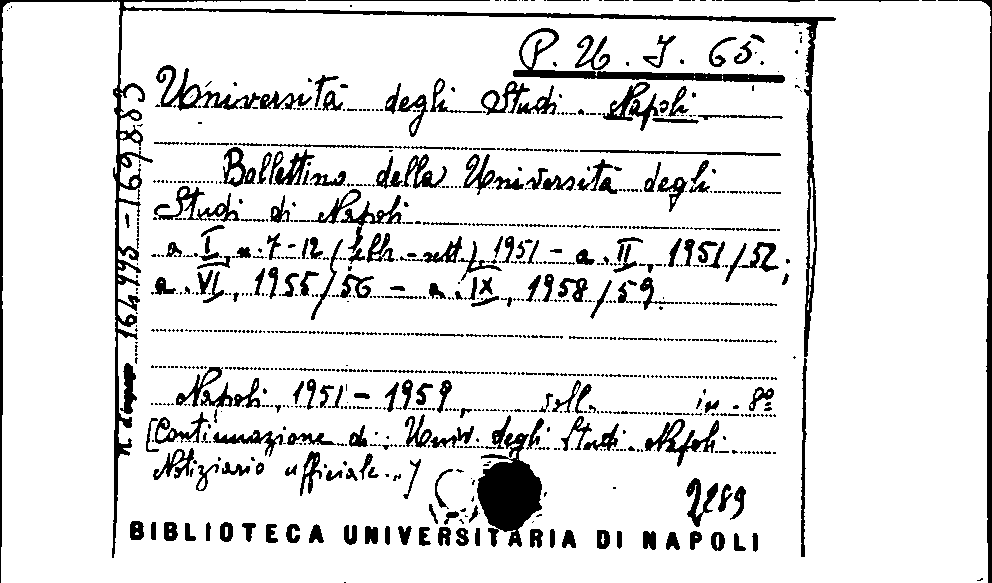 P. U. J. 65.
Università degli Studi. Napoli.
Bollettino della Università degli
Studi di Napoli.
a. I, n. 7-12 (febb.-sett.), 1951 - a. II, 1951/52;
a. VI, 1955/56 - a. IX, 1958/59.
Napoli, 1951-1959, voll. in-8º
[Continuazione di: Univ. degli Studi. Napoli.
Notiziario ufficiale..]
2289
BIBLIOTECA UNIVERSITARIA DI NAPOLI
n. d'ingresso 164495-169883